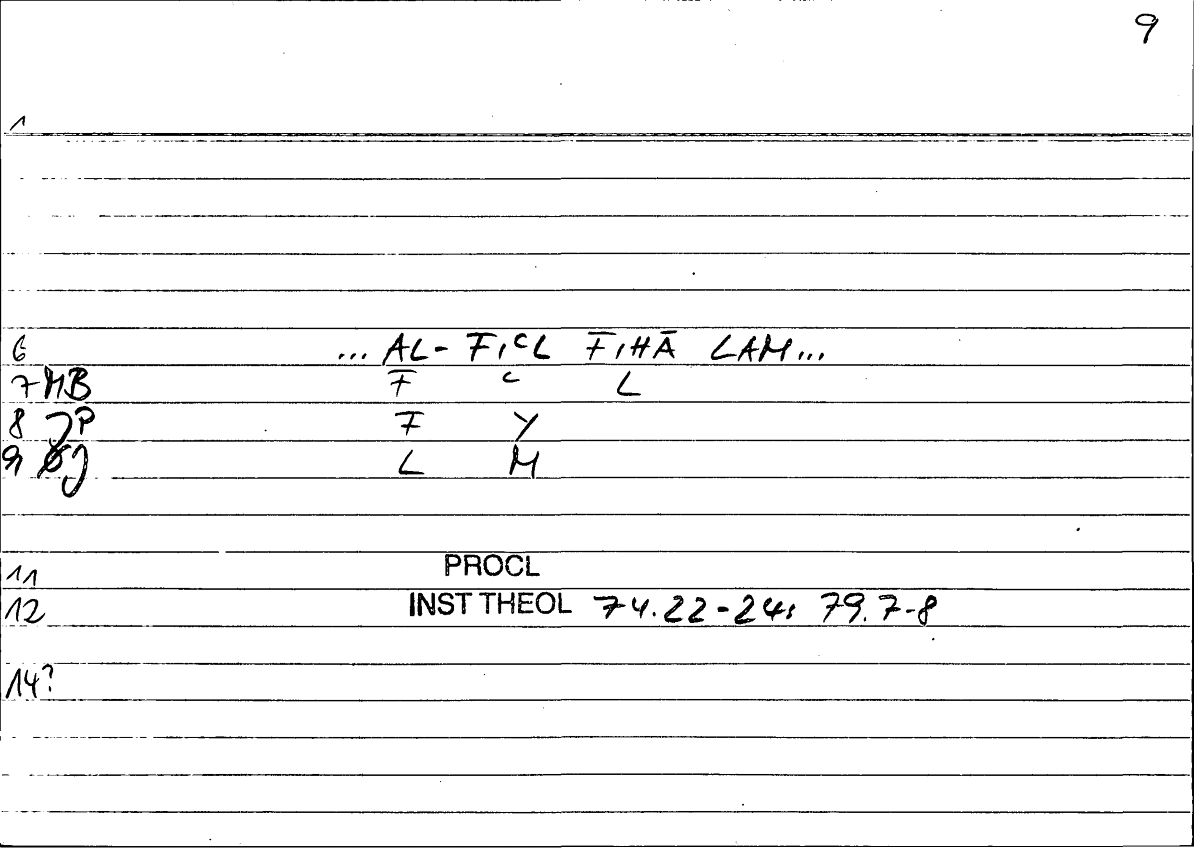 9
1
6 ... AL-FIᶜL FĪHĀ LAM...
7 MB F ᶜ L
8 JP F Y
9 J L M
11 PROCL
12 INST THEOL 74.22-24; 79.7-8
14?